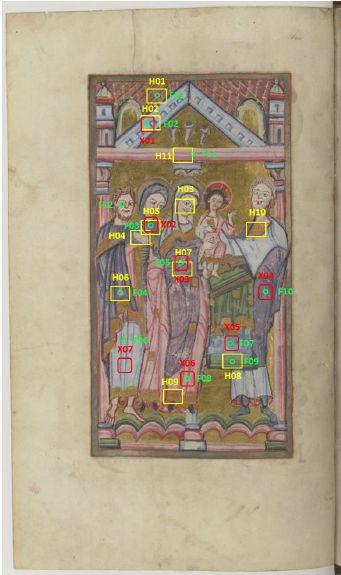 H01
F01
H02
F02
X01
H11
F11
F12
H03
H05
F03
X02
H04
H10
F05
H07
X03
H06
F04
X04
F10
X05
F07
F06
X07
F09
X06
H08
F08
H09